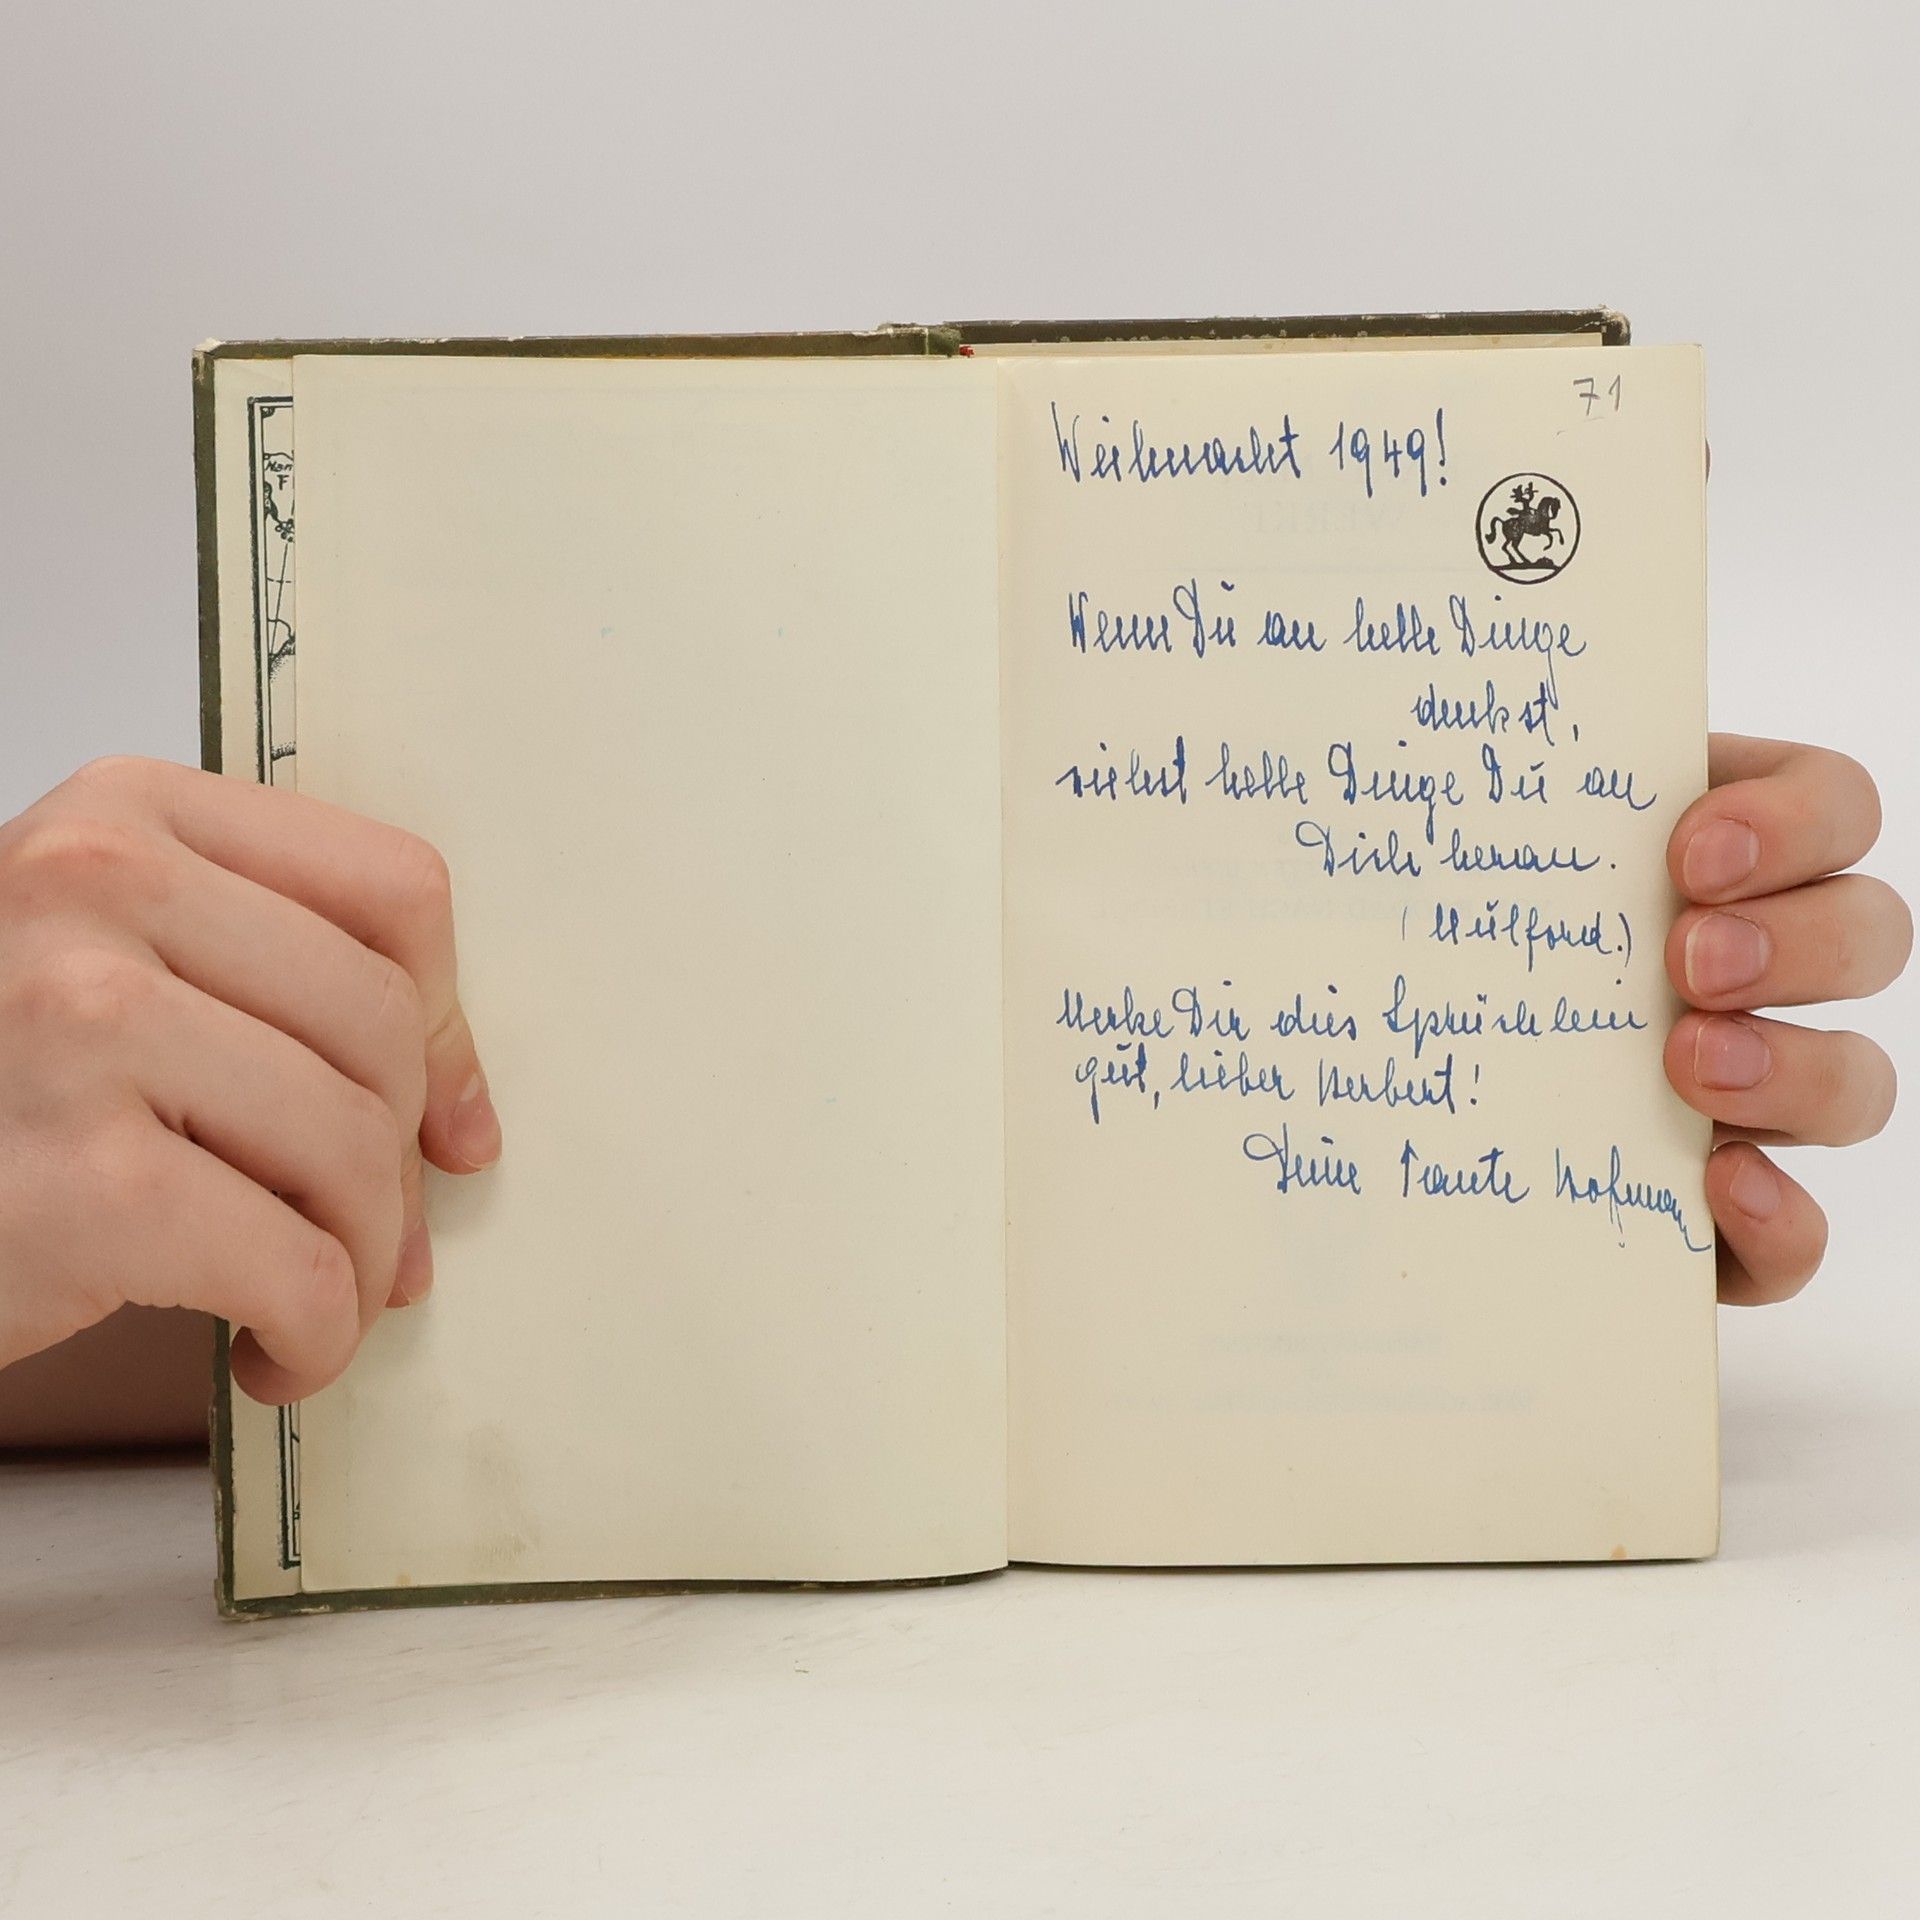 71
Weihnacht 1949!
Wenn Du an helle Dinge
denkst,
ziehst helle Dinge Du an
Dich heran.
(Mulford.)
Merke Dir dies Sprüchlein
gut, lieber Herbert!
Deine Tante Hofmann
WERKE
Nan
F